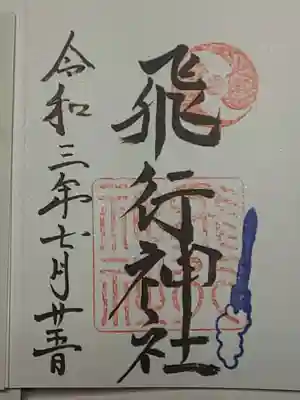 飛行神社
令和三年七月廿五日